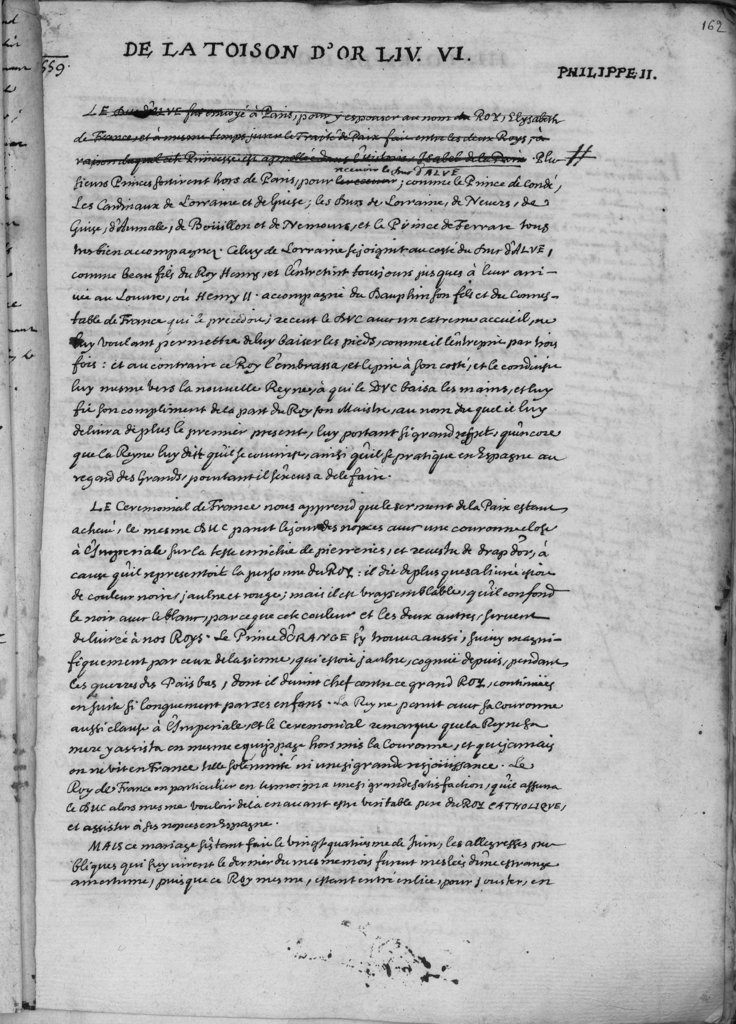 162
DE LA TOISON D'OR LIV. VI.
1559.
PHILIPPE II.
LE Duc d'ALVE fut envoyé à Paris, pour y espouser au nom du ROY, Elysabeth
de France, et à mesme temps jurer le Traité de Paix fait entre les deux Roys, à
raison duquel cete Princesse est appellée dans l'histoire, Isabel de la Paix. Plu- #
recevoir le Duc d'ALVE
sieurs Princes sortirent hors de Paris, pour le recevoir; comme le Prince de Condé,
Les Cardinaux de Lorraine et de Guise; les Ducs de Lorraine, de Nevers, de
Guise, d'Aumale, de Boüillon et de Nemours, et le Prince de Ferrare tous
tres bien accompagnez. Celuy de Lorraine se joignit au costé du Duc d'ALVE,
comme beau fils du Roy Henry, et l'entretint tousjours jusques à leur arri-
vée au Louvre, où Henry II. acompagné du Dauphin son fils et du Connes-
table de France qui le precedoit, receut le DUC avec un extreme accueil, ne
luy voulant permettre de luy baiser les pieds, comme il l'entreprit par trois
fois: et au contraire ce Roy l'embrassa, et le prit à son costé, et le conduisit
luy mesme vers la nouvelle Reyne, à qui le DUC baisa les mains, et luy
fit son compliment de la part du Roy son Maistre, au nom du quel il luy
delivra de plus le premier present, luy portant si grand respet, qu'encore
que la Reyne luy dist qu'il se couvrist, ainsi qu'il se pratique en Espagne au
regard des Grands, pourtant il s'excusa de le faire.
LE Ceremonial de France nous apprend que le serment de la Paix estant
achevé, le mesme DUC parut le jour des nopces avec une couronne close
à l'Imperiale sur la teste enrichie de pierreries, et revestu de drap d'or, à
cause qu'il representoit la personne du ROY: il dit de plus que sa livrée estoit
de couleur noire, jaulne et rouge; mais il est vraysemblable, qu'il confond
le noir avec le blanc, parce que cete couleur et les deux autres, servent
de livrée à nos ROYS. Le Prince D'ORANGE s'y trouva aussi, suivy magni-
fiquement par ceux de la sienne, qui estoit jaulne, cognuë depuis, pendant
les guerres des Païs bas, dont il devint Chef contre ce grand ROY, continuées
en suite si longuement par ses enfans. La Reyne parut avec sa Couronne
aussi clause à l'Imperiale, et le Ceremonial remarque que la Reyne sa
mere y assista en mesme equippage hors mis la Couronne, et que jamais
on ne vit en France telle solemnité ni une si grande resjouissance. Le
Roy de France en particulier en tesmoigna une si grande satisfaction, qu'il assura
le DUC alors mesme vouloir de là en avant estre veritable pere du ROY CATHOLIQUE,
et assister à ses nopces en Espagne.
MAIS ce mariage s'estant fait le vingt quatriesme de Juin, les allegresses pu-
bliques qui suyvirent le dernier du mesme mois furent meslées d'une estrange
amertume, puisque ce Roy mesme, estant entré en lice, pour jouster, en